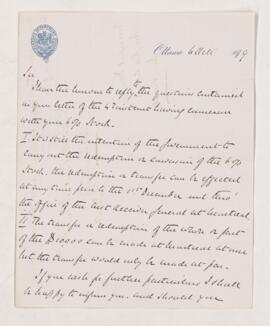 Ottawa 6 Oct 1879
Sir
I have the honour to reply to the questions contained
in your letter of the 4 instant having
with your 6 % Stock.
I. It is the intention of the Government to
carry out the redemption or conversion of the 6 %
Stock, the redemption or transfer can be effected
at any time prior to the 1st December next thro'
the Office of the Asst Receiver General at Montreal
II The transfer or redemption of the whole or part
of the $10000 can be made at Montreal at once
but the transfer would only be made at par.
If you wish for further particulars I shall
be happy to inform you, and should you